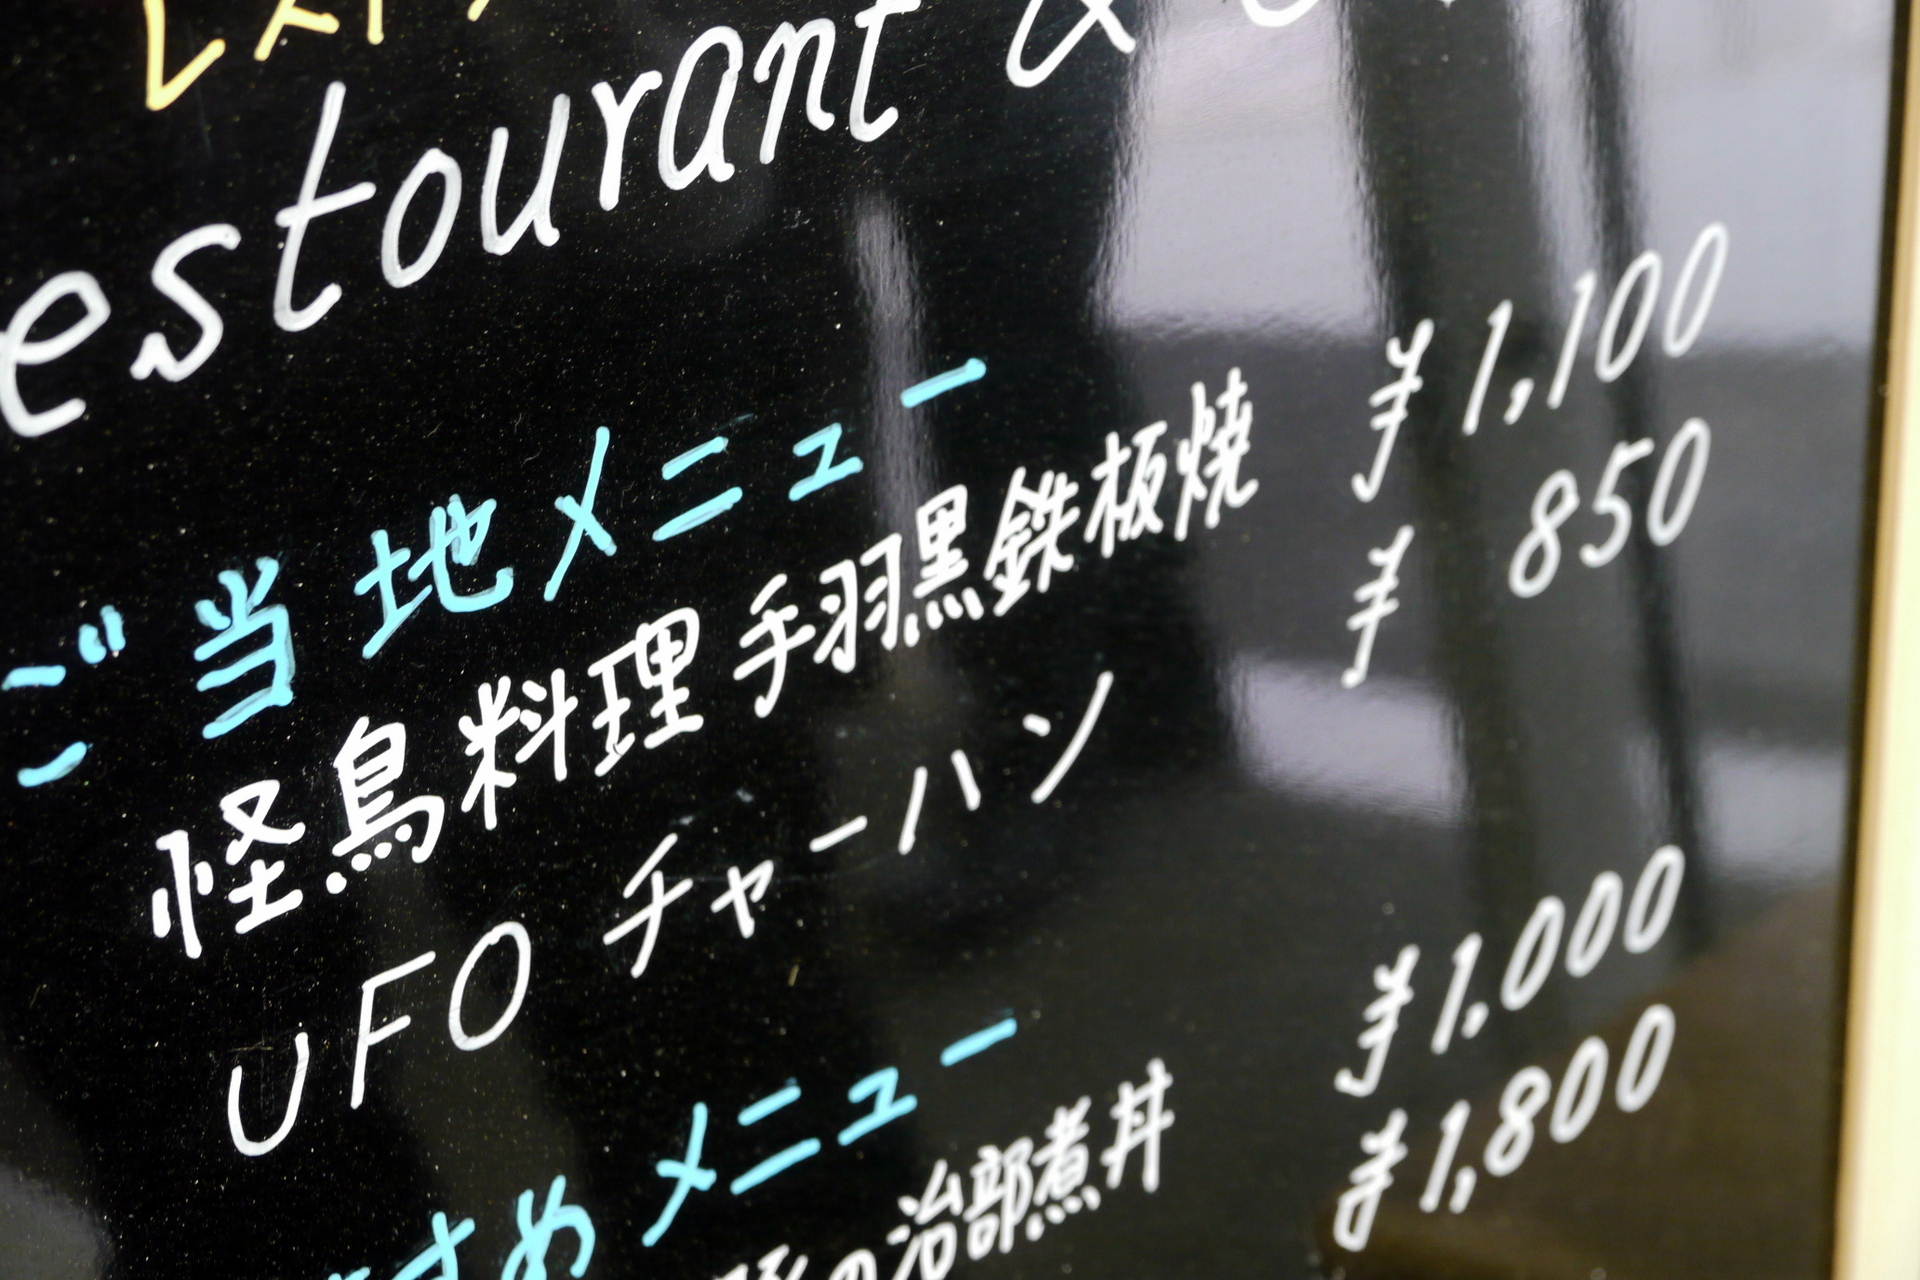 レスト
estourant &
ご当地メニュー
怪鳥料理 手羽黒鉄板焼 ¥1,100
UFO チャーハン ¥ 850
すめメニュー
の治部煮丼 ¥1,000
¥1,800